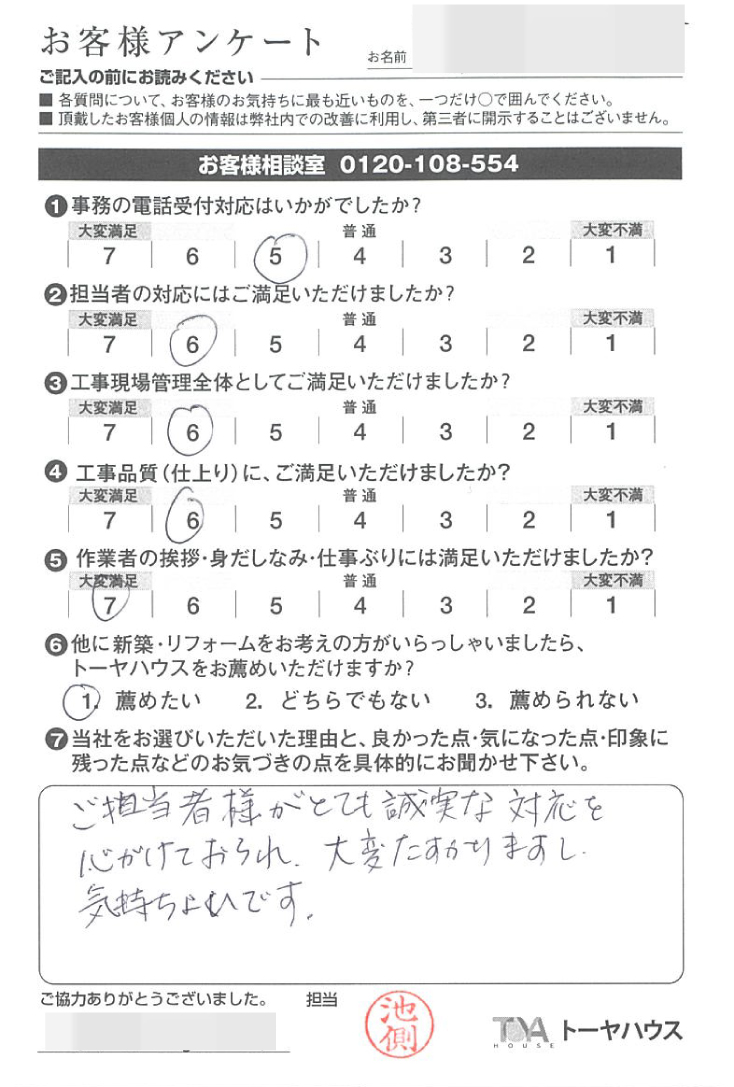 お客様アンケート
お名前
ご記入の前にお読みください
■ 各質問について、お客様のお気持ちに最も近いものを、一つだけ○で囲んでください。
■ 頂戴したお客様個人の情報は弊社内での改善に利用し、第三者に開示することはございません。
お客様相談室 0120-108-554
❶事務の電話受付対応はいかがでしたか?
大変満足 普通 大変不満
7 6 5 4 3 2 1
❷担当者の対応にはご満足いただけましたか?
大変満足 普通 大変不満
7 6 5 4 3 2 1
❸工事現場管理全体としてご満足いただけましたか?
大変満足 普通 大変不満
7 6 5 4 3 2 1
❹工事品質(仕上り)に、ご満足いただけましたか?
大変満足 普通 大変不満
7 6 5 4 3 2 1
❺作業者の挨拶・身だしなみ・仕事ぶりには満足いただけましたか?
大変満足 普通 大変不満
7 6 5 4 3 2 1
❻他に新築・リフォームをお考えの方がいらっしゃいましたら、
トーヤハウスをお薦めいただけますか?
1. 薦めたい 2. どちらでもない 3. 薦められない
❼当社をお選びいただいた理由と、良かった点・気になった点・印象に
残った点などのお気づきの点を具体的にお聞かせ下さい。
ご担当者様がとても誠実な対応を
心がけておられ、大変たすかりますし
気持ちよいです。
ご協力ありがとうございました。 担当
池側
TOYA HOUSE トーヤハウス